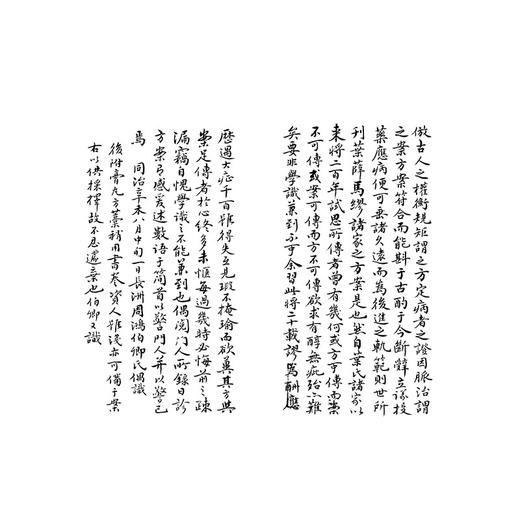 倣古人之權衡規矩謂之方定病者之證因脈治謂
之案方案符合而能斟于古酌于今斷辭立議投
藥應病便可垂諸久遠而為後進之軌範則世所
刊葉薛馬繆諸家之方案是也然自葉氏諸家以
來將二百年試思所傳者曾有幾何或方可傳而案
不可傳或案可傳而方不可傳欲求有醇無疵殆亦難
矣要非學識兼到不可余習此將二十載謬為酬應
歷遇大症千百雖得失互見瑕不掩瑜而欲冀其方與
案足傳者於心終多未愜每過幾時必悔前之疎
漏竊自愧學識之不能兼到也偶閱門人所錄日診
方案有感爰述數語于簡首以警門人并以警己
焉 同治辛未八月中旬一日長洲周鴻伯卿氏偶識
後附膏丸方藁稍用書卷資人雖淺亦可備于案
右以供採擇故不忍遽棄也伯卿又識